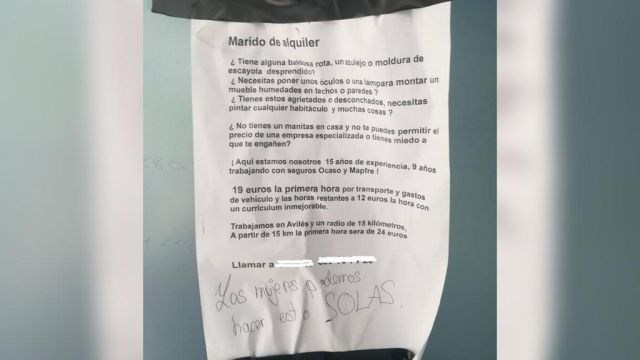 Marido de alquiler
¿ Tiene alguna baldosa rota, un azulejo o moldura de
escayola desprendido?
¿ Necesitas poner unos óculos o una lampara montar un
mueble humedades en techos o paredes ?
¿ Tienes estos agrietados o desconchados, necesitas
pintar cualquier habitáculo y muchas cosas ?
¿ No tienes un manitas en casa y no te puedes permitir el
precio de una empresa especializada o tienes miedo a
que te engañen?
¡ Aqui estamos nosotros 15 años de experiencia, 9 años
trabajando con seguros Ocaso y Mapfre !
19 euros la primera hora por transporte y gastos
de vehículo y las horas restantes a 12 euros la hora con
un curriculum inmejorable.
Trabajamos en Avilés y un radio de 15 kilómetros,
A partir de 15 km la primera hora sera de 24 euros
Llamar a
Las mujeres podemos
hacer esto SOLAS.